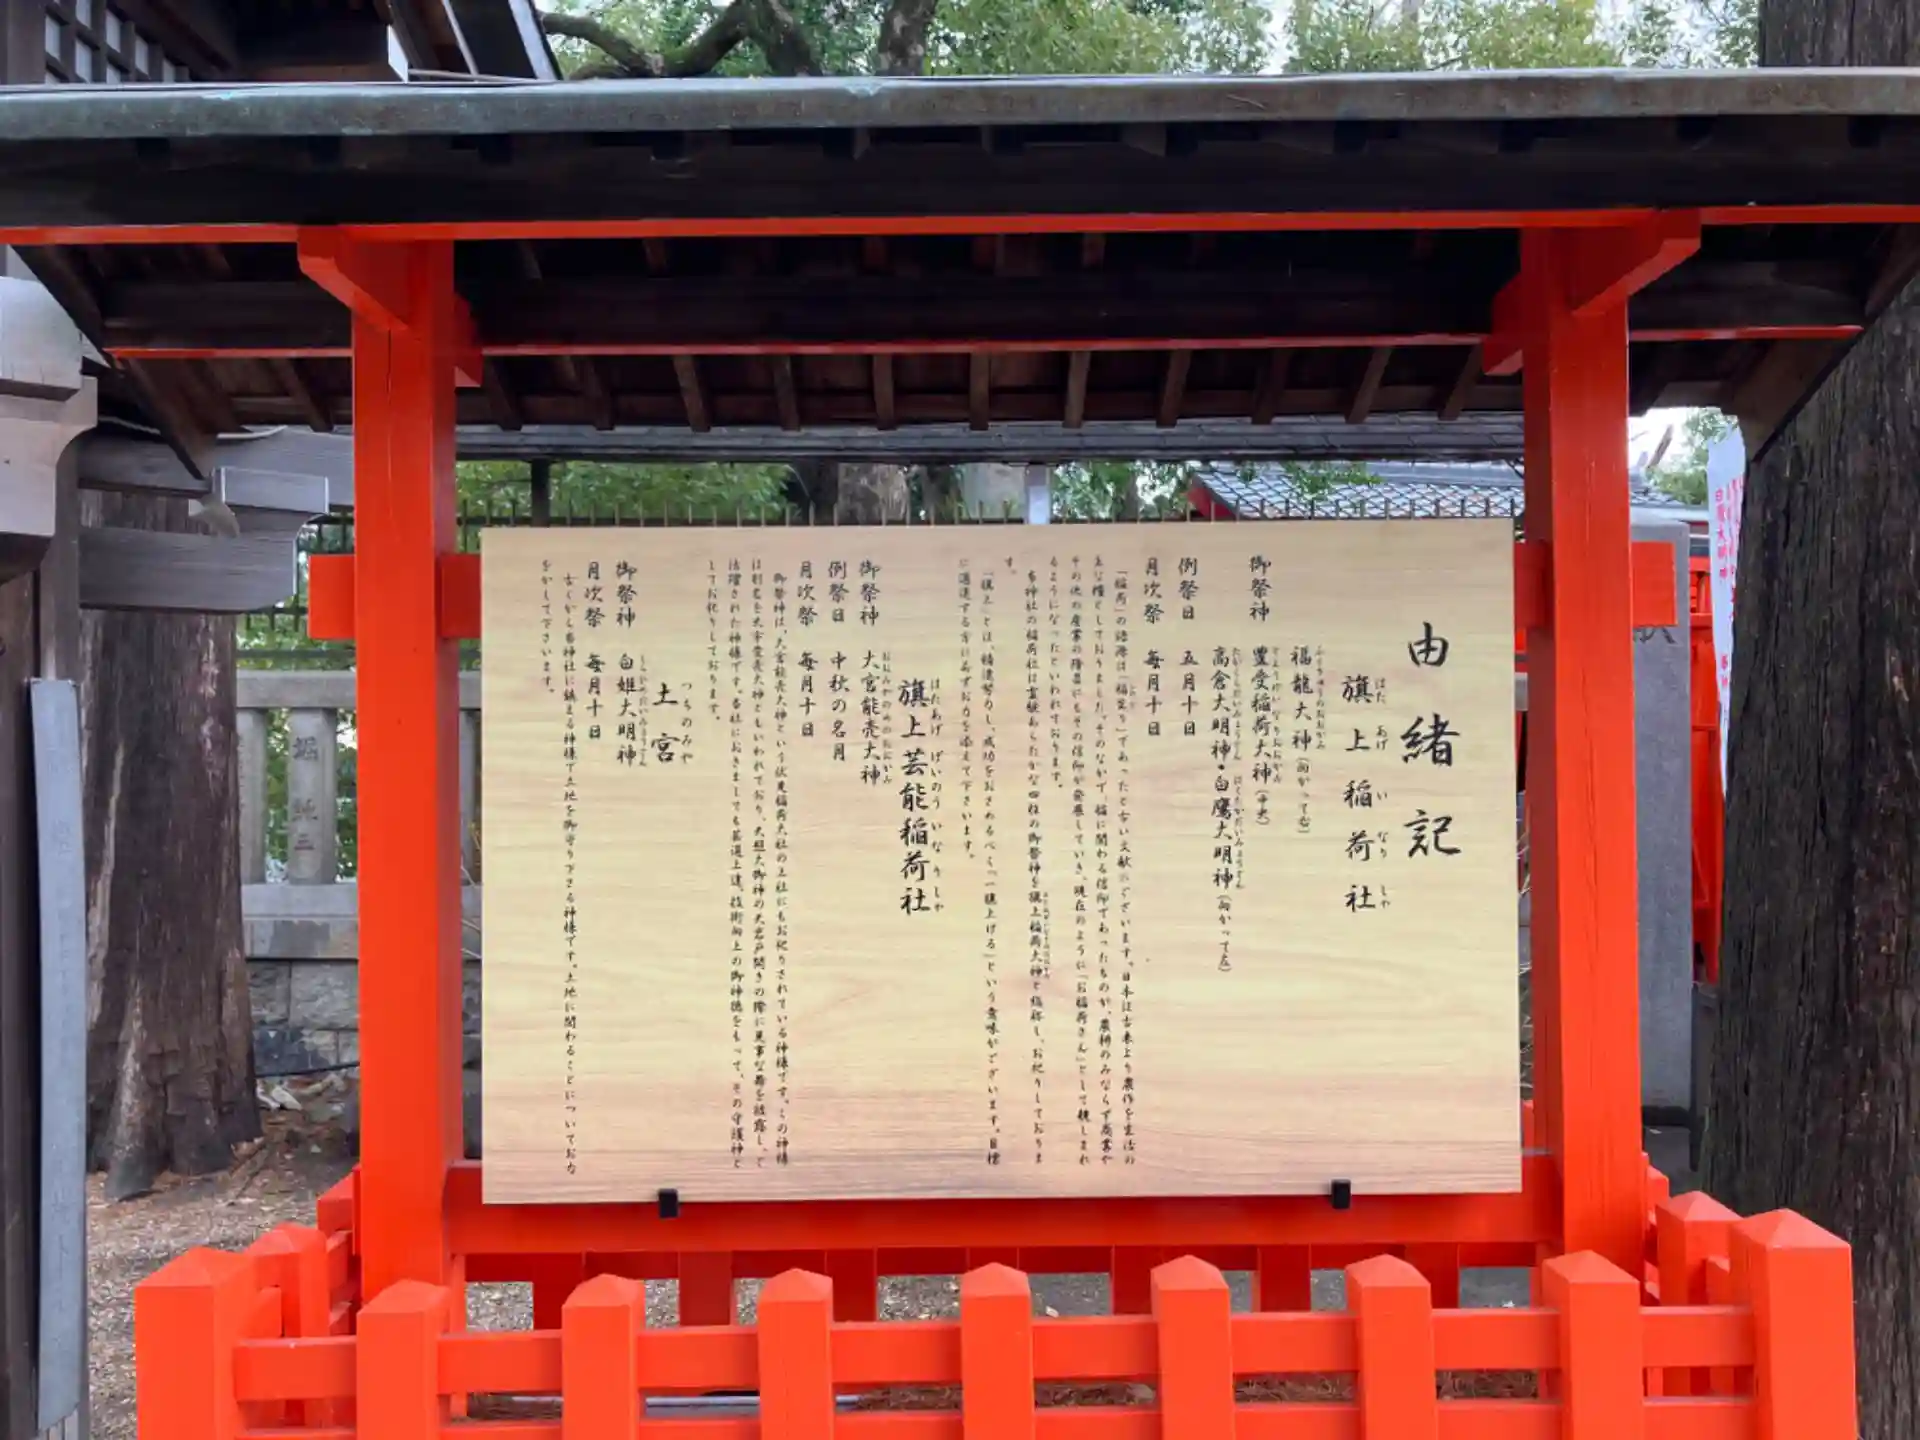 由緒記
旗上稲荷社
はた あげ い なり しゃ
福龍大神(向かって右)
御祭神 豊受稲荷大神(中央)
高倉大明神・白鷹大明神(向かって左)
例祭日 五月十日
月次祭 毎月十日
「稲荷」の語源は「稲生り」であったと古い文献にございます。日本は古来より農作を生活の
主な糧としておりました。そのなかで、稲に関わる信仰であったものが、農耕のみならず商業や
その他の産業の隆昌にもその信仰が発展していき、現在のように「お稲荷さん」として親しまれ
るようになったといわれております。
当神社の稲荷社は霊験あらたかな四柱の御祭神を旗上稲荷大神と総称し、お祀りしておりま
す。
「旗上」とは、精進努力し、成功をおさめるべく「一旗上げる」という意味がございます。目標
に邁進する方に必ずお力を添えて下さいます。
旗上芸能稲荷社
はたあげ げいのう いなり しゃ
御祭神 大宮能売大神
おおみやのめのおおかみ
例祭日 中秋の名月
月次祭 毎月十日
御祭神は、大宮能売大神という伏見稲荷大社の上社にもお祀りされている神様です。この神様
は別名を天宇受売大神ともいわれており、天照大御神の天岩戸開きの際に見事な舞を披露し、ご
活躍された神様です。当社におきましても芸道上達、技術向上の御神徳をもって、その守護神と
してお祀りしております。
土宮
つちのみや
御祭神 白姫大明神
月次祭 毎月十日
古くから当神社に鎮まる神様で土地を御守り下さる神様です。土地に関わることについてお力
をかして下さいます。